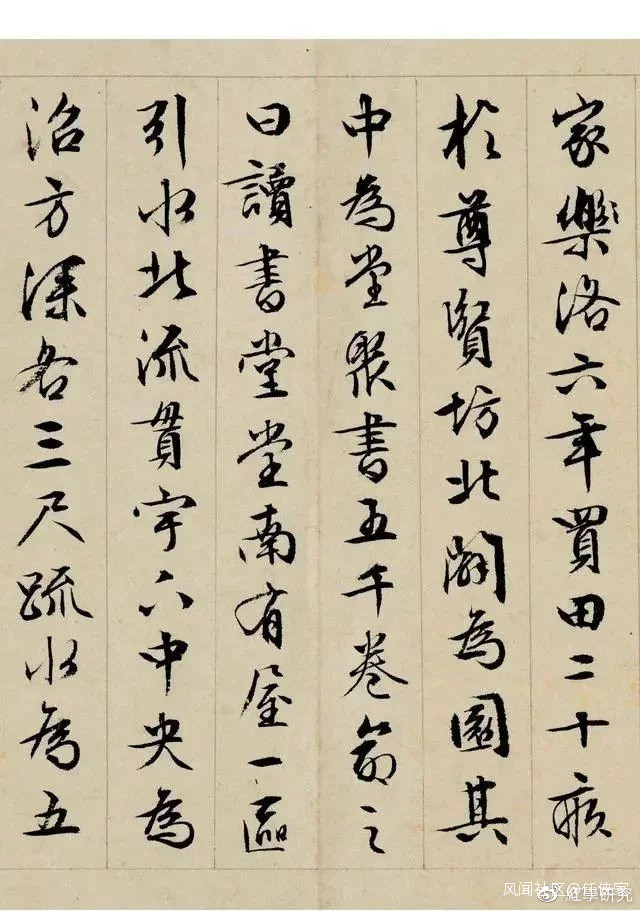 家樂洛六年買田二十畝
於尊賢坊北闢為園其
中為堂聚書五千卷命之
曰讀書堂堂南有屋一區
引水北流貫宇下中央為
沼方深各三尺疏水為五
风闻社区
@紅學研究